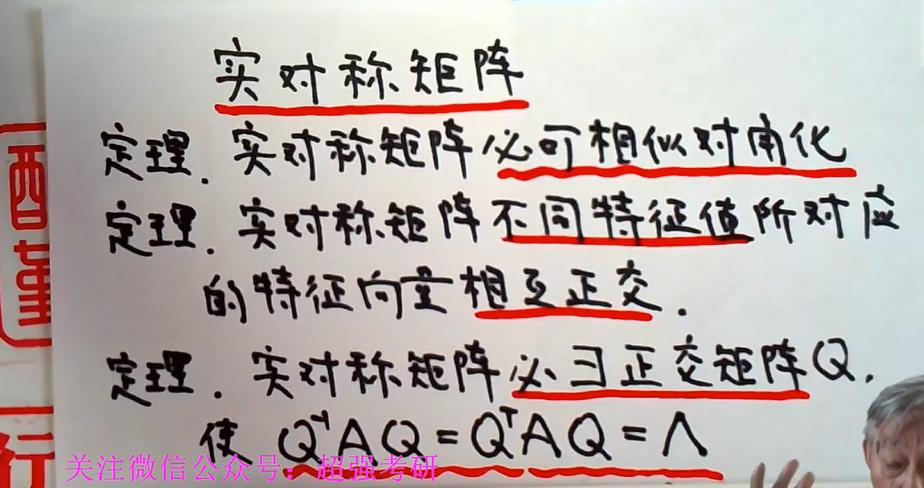 实对称矩阵
定理. 实对称矩阵必可相似对角化
定理. 实对称矩阵不同特征值所对应
的特征向量相互正交.
定理. 实对称矩阵必∃正交矩阵Q,
使 Q⁻¹AQ=QᵀAQ=Λ
关注微信公众号:超强考研
行